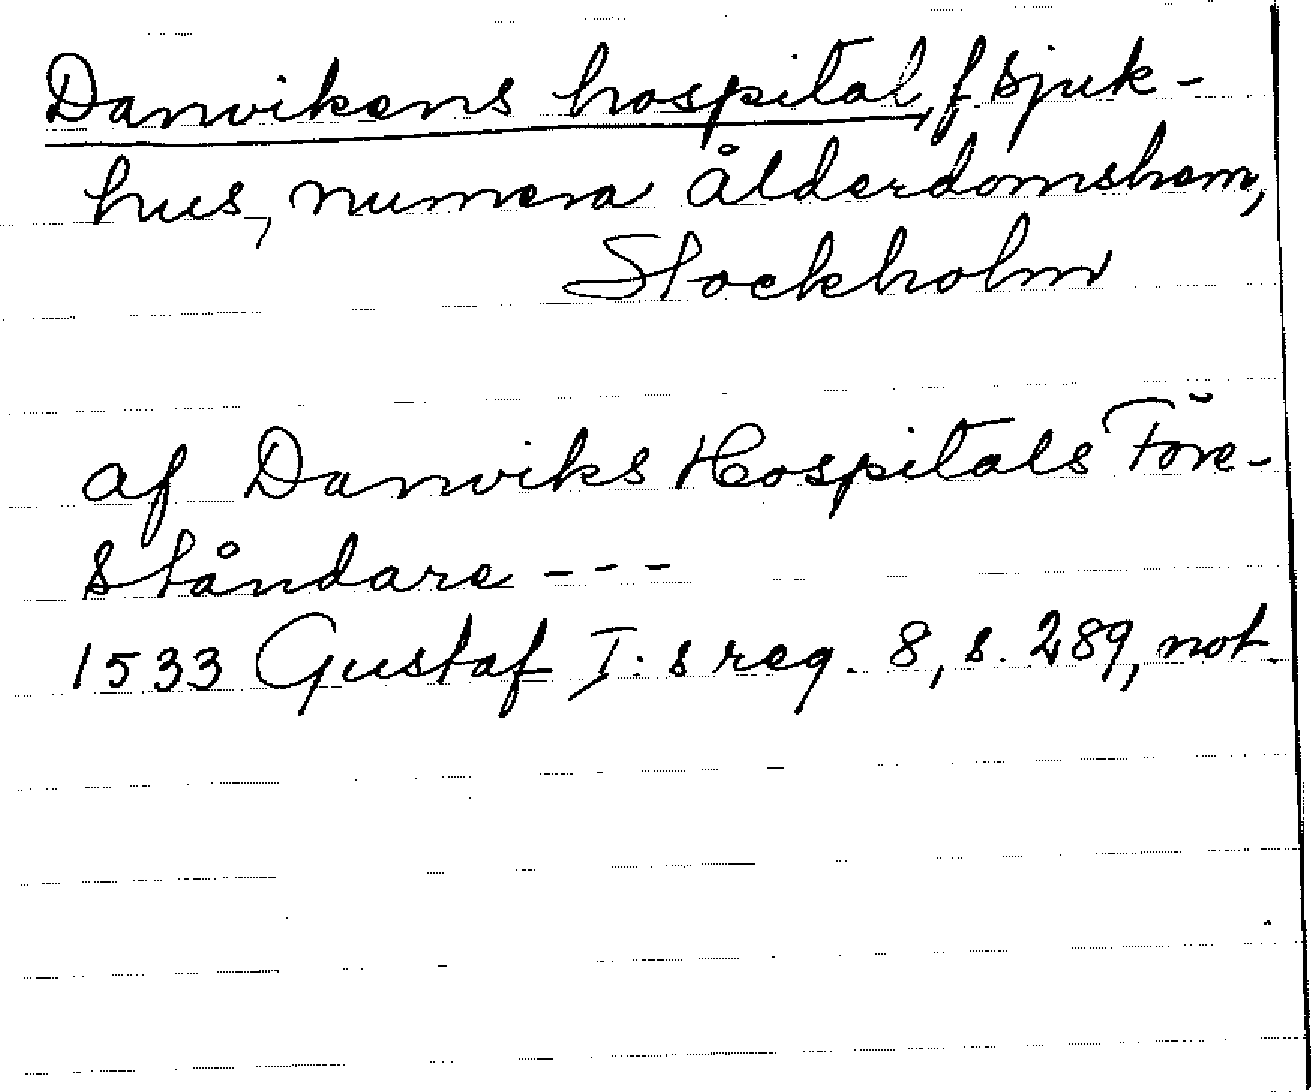 Danvikens hospital, f sjuk-
hus, numera ålderdomshem,
Stockholm
af Danviks Hospitals Före-
ståndare ---
1533 Gustaf I:s reg. 8, s. 289, not.